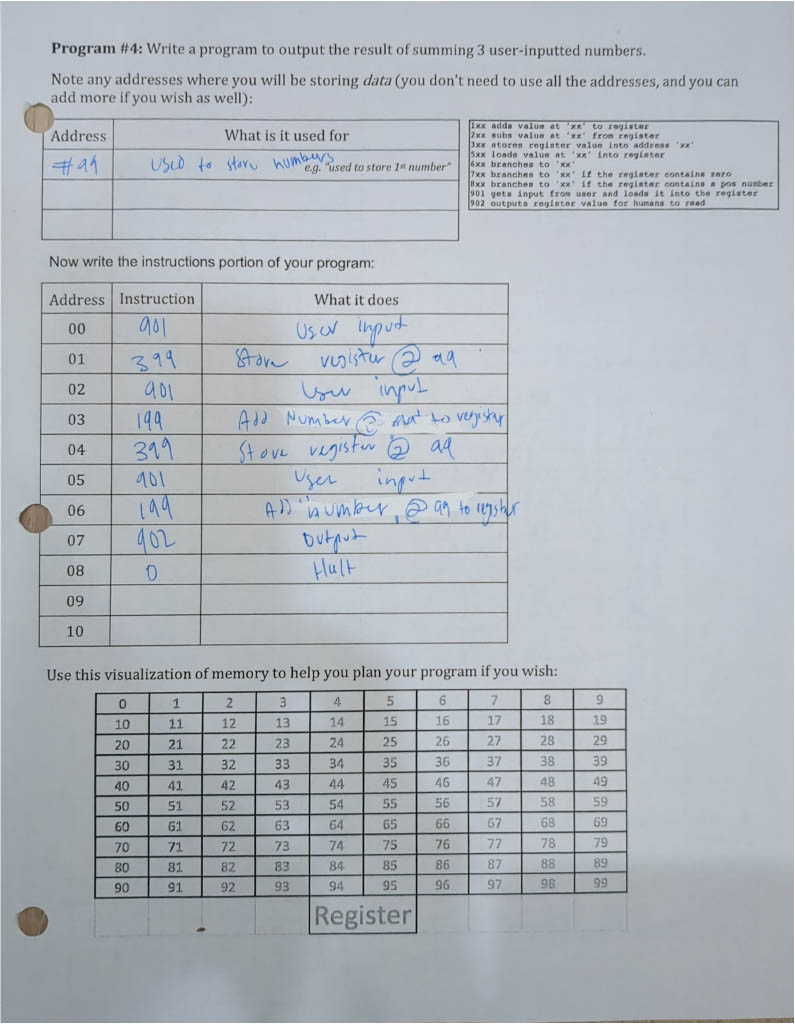 Program #4: Write a program to output the result of summing 3 user-inputted numbers.
Note any addresses where you will be storing data (you don't need to use all the addresses, and you can
add more if you wish as well):
Address What is it used for
#99 Used to store numbers e.g. "used to store 1st number"
1xx adds value at 'xx' to register
2xx subs value at 'xx' from register
3xx stores register value into address 'xx'
5xx loads value at 'xx' into register
6xx branches to 'xx'
7xx branches to 'xx' if the register contains zero
8xx branches to 'xx' if the register contains a pos number
901 gets input from user and loads it into the register
902 outputs register value for humans to read
Now write the instructions portion of your program:
Address Instruction What it does
00 901 User input
01 399 Store register @ 99
02 901 User input
03 199 Add Number @ to register
04 399 Store register @ 99
05 901 User input
06 199 Add number @ 99 to register
07 902 Output
08 0 Halt
09
10
Use this visualization of memory to help you plan your program if you wish:
0 1 2 3 4 5 6 7 8 9
10 11 12 13 14 15 16 17 18 19
20 21 22 23 24 25 26 27 28 29
30 31 32 33 34 35 36 37 38 39
40 41 42 43 44 45 46 47 48 49
50 51 52 53 54 55 56 57 58 59
60 61 62 63 64 65 66 67 68 69
70 71 72 73 74 75 76 77 78 79
80 81 82 83 84 85 86 87 88 89
90 91 92 93 94 95 96 97 98 99
Register